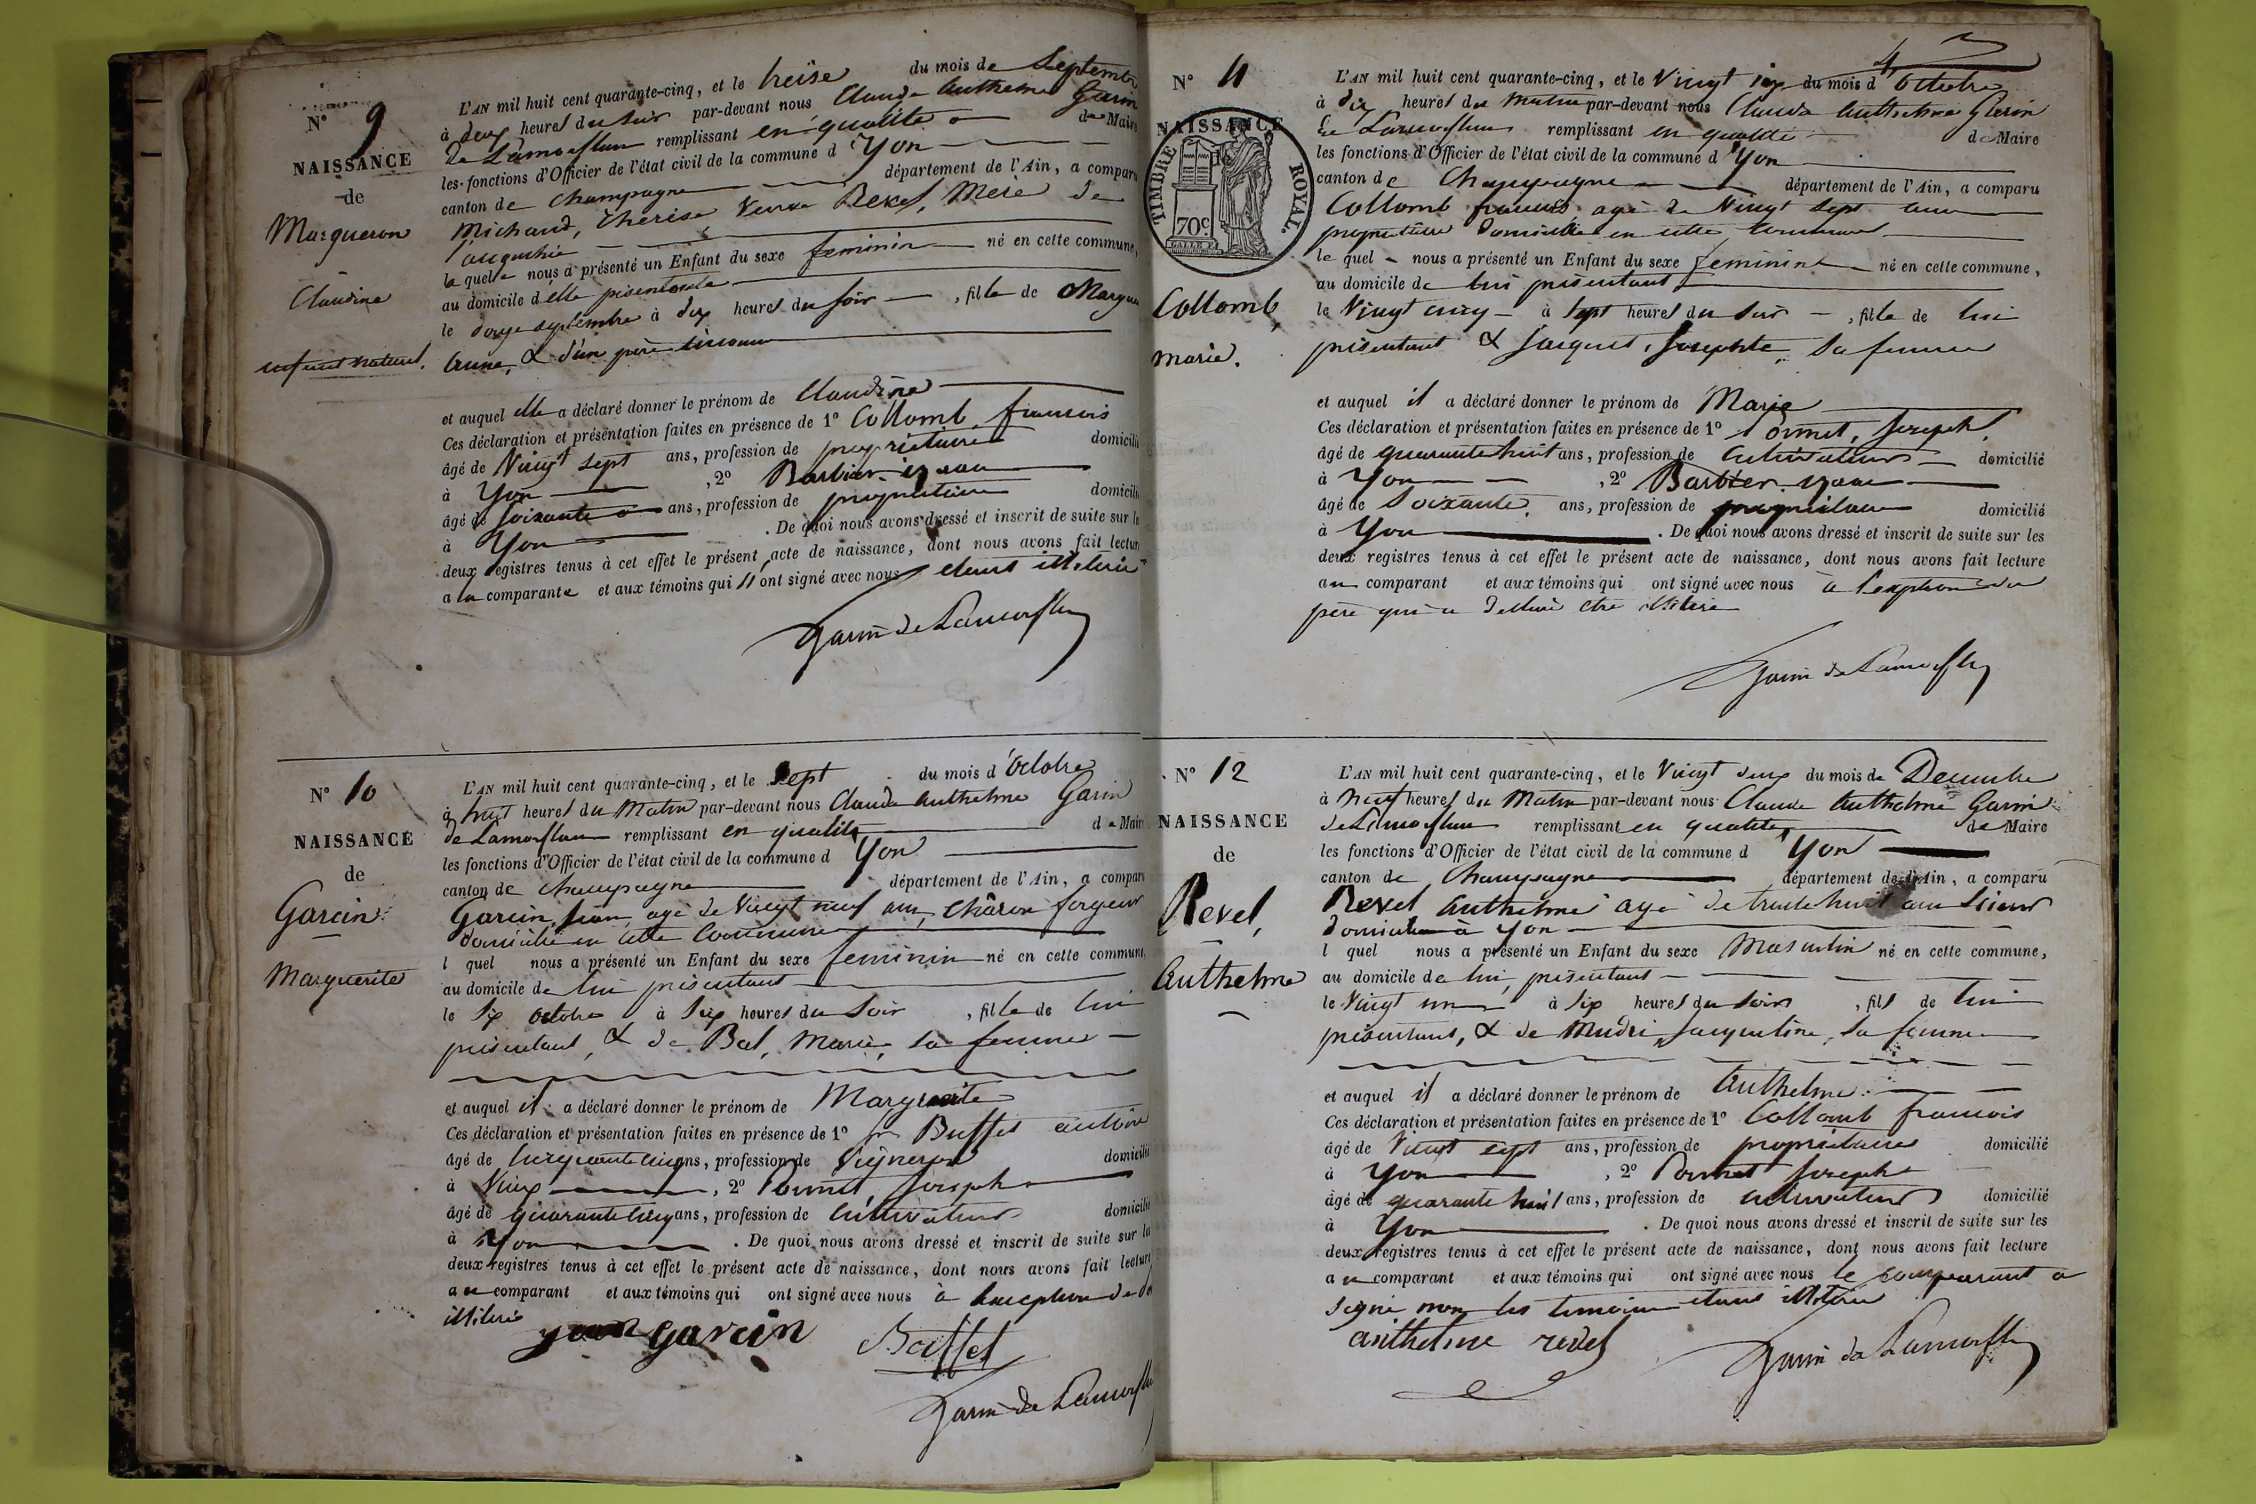 N° 9
NAISSANCE
de
Marqueron
Claudine
enfant naturel.
L'AN mil huit cent quarante-cinq, et le treise du mois de Septembre
à deux heures du soir par-devant nous Claude Anthelme Garin
de Lamorflan remplissant en qualité de Maire
les fonctions d'Officier de l'état civil de la commune d'Yon
canton de Champagne département de l'Ain, a comparu
Michaud, Therise Veuve Revel, Mere de
l'angushié
laquelle nous a présenté un Enfant du sexe feminin né en cette commune,
au domicile d'elle présentante
le douze septembre à dix heures du soir, fille de Marque
Anne, & d'un père inconnu
et auquel elle a déclaré donner le prénom de Claudine
Ces déclaration et présentation faites en présence de 1° Collomb françois
âgé de Vingt sept ans, profession de proprietaire domicilié
à Yon, 2° Barbier
âgé de soixante ans, profession de proprietaire domicilié
à Yon. De quoi nous avons dressé et inscrit de suite sur les
deux registres tenus à cet effet le présent acte de naissance, dont nous avons fait lecture
a la comparante et aux témoins qui n'ont signé avec nous étant illiteré
Garin de Lamorflan
N° 10
NAISSANCE
de
Garcin
Marguerite
L'AN mil huit cent quarante-cinq, et le Sept du mois d'Octobre
à huit heures du Matin par-devant nous Claude Anthelme Garin
de Lamorflan remplissant en qualité de Maire
les fonctions d'Officier de l'état civil de la commune d Yon
canton de Champagne département de l'Ain, a comparu
Garcin, Jean, agé de Vingt neuf ans, Charon forgeur
domicilié en cette Commune
l quel nous a présenté un Enfant du sexe feminin né en cette commune,
au domicile de lui présentant
le Six Octobre à Six heures du Soir, fille de lui
présentant, & de Bal, Marie, sa femme
et auquel il a déclaré donner le prénom de Marguerite
Ces déclaration et présentation faites en présence de 1° Buffet antoine
âgé de Cinquante cinq ans, profession de Vigneron domicilié
à Vieux, 2° Pornet, Joseph
âgé de quarante huit ans, profession de Cultivateur domicilié
à Yon. De quoi nous avons dressé et inscrit de suite sur les
deux registres tenus à cet effet le présent acte de naissance, dont nous avons fait lecture
au comparant et aux témoins qui ont signé avec nous à l'exception de
illiteré
jean garcin Buffet
Garin de Lamorflan
N° 11
NAISSANCE
TIMBRE ROYAL.
70c.
Collomb
Marie.
L'AN mil huit cent quarante-cinq, et le Vingt six du mois d'Octobre
à dix heures du Matin par-devant nous Claude Anthelme Garin
de Lamorflan remplissant en qualité de Maire
les fonctions d'Officier de l'état civil de la commune d'Yon
canton de Champagne département de l'Ain, a comparu
Collomb francois, agé de Vingt sept ans
propriétaire domicilié en cette commune
le quel nous a présenté un Enfant du sexe feminin né en cette commune,
au domicile de lui présentant
le Vingt cinq à sept heures du soir, fille de lui
présentant & Josephte, sa femme
et auquel il a déclaré donner le prénom de Marie
Ces déclaration et présentation faites en présence de 1° Pornet, Joseph,
âgé de quarante huit ans, profession de Cultivateur domicilié
à Yon, 2° Barbier
âgé de Soixante, ans, profession de propriétaire domicilié
à Yon. De quoi nous avons dressé et inscrit de suite sur les
deux registres tenus à cet effet le présent acte de naissance, dont nous avons fait lecture
au comparant et aux témoins qui ont signé avec nous à l'exption du
père qui a déclaré etre illiteré
Garin de Lamorflan
N° 12
NAISSANCE
de
Revel,
Anthelme
L'AN mil huit cent quarante-cinq, et le Vingt deux du mois de Decembre
à Neuf heures du Matin par-devant nous Claude Anthelme Garin
de Lamorflan remplissant en qualité de Maire
les fonctions d'Officier de l'état civil de la commune d Yon
canton de Champagne département de l'Ain, a comparu
Revel Anthelme agé de trente huit ans Scieur
domicilié à Yon
l quel nous a présenté un Enfant du sexe Masculin né en cette commune,
au domicile de lui, présentant
le Vingt un à Six heures du soir, fils de lui
présentant, & de Jacqueline, sa femme
et auquel il a déclaré donner le prénom de Anthelme
Ces déclaration et présentation faites en présence de 1° Collomb francois
âgé de Vingt sept ans, profession de propriétaire domicilié
à Yon, 2° Pornet Joseph
âgé de quarante huit ans, profession de cultivateur domicilié
à Yon. De quoi nous avons dressé et inscrit de suite sur les
deux registres tenus à cet effet le présent acte de naissance, dont nous avons fait lecture
au comparant et aux témoins qui ont signé avec nous le comparant a
signé non les temoins etant illiteré
anthelme revel
Garin de Lamorflan